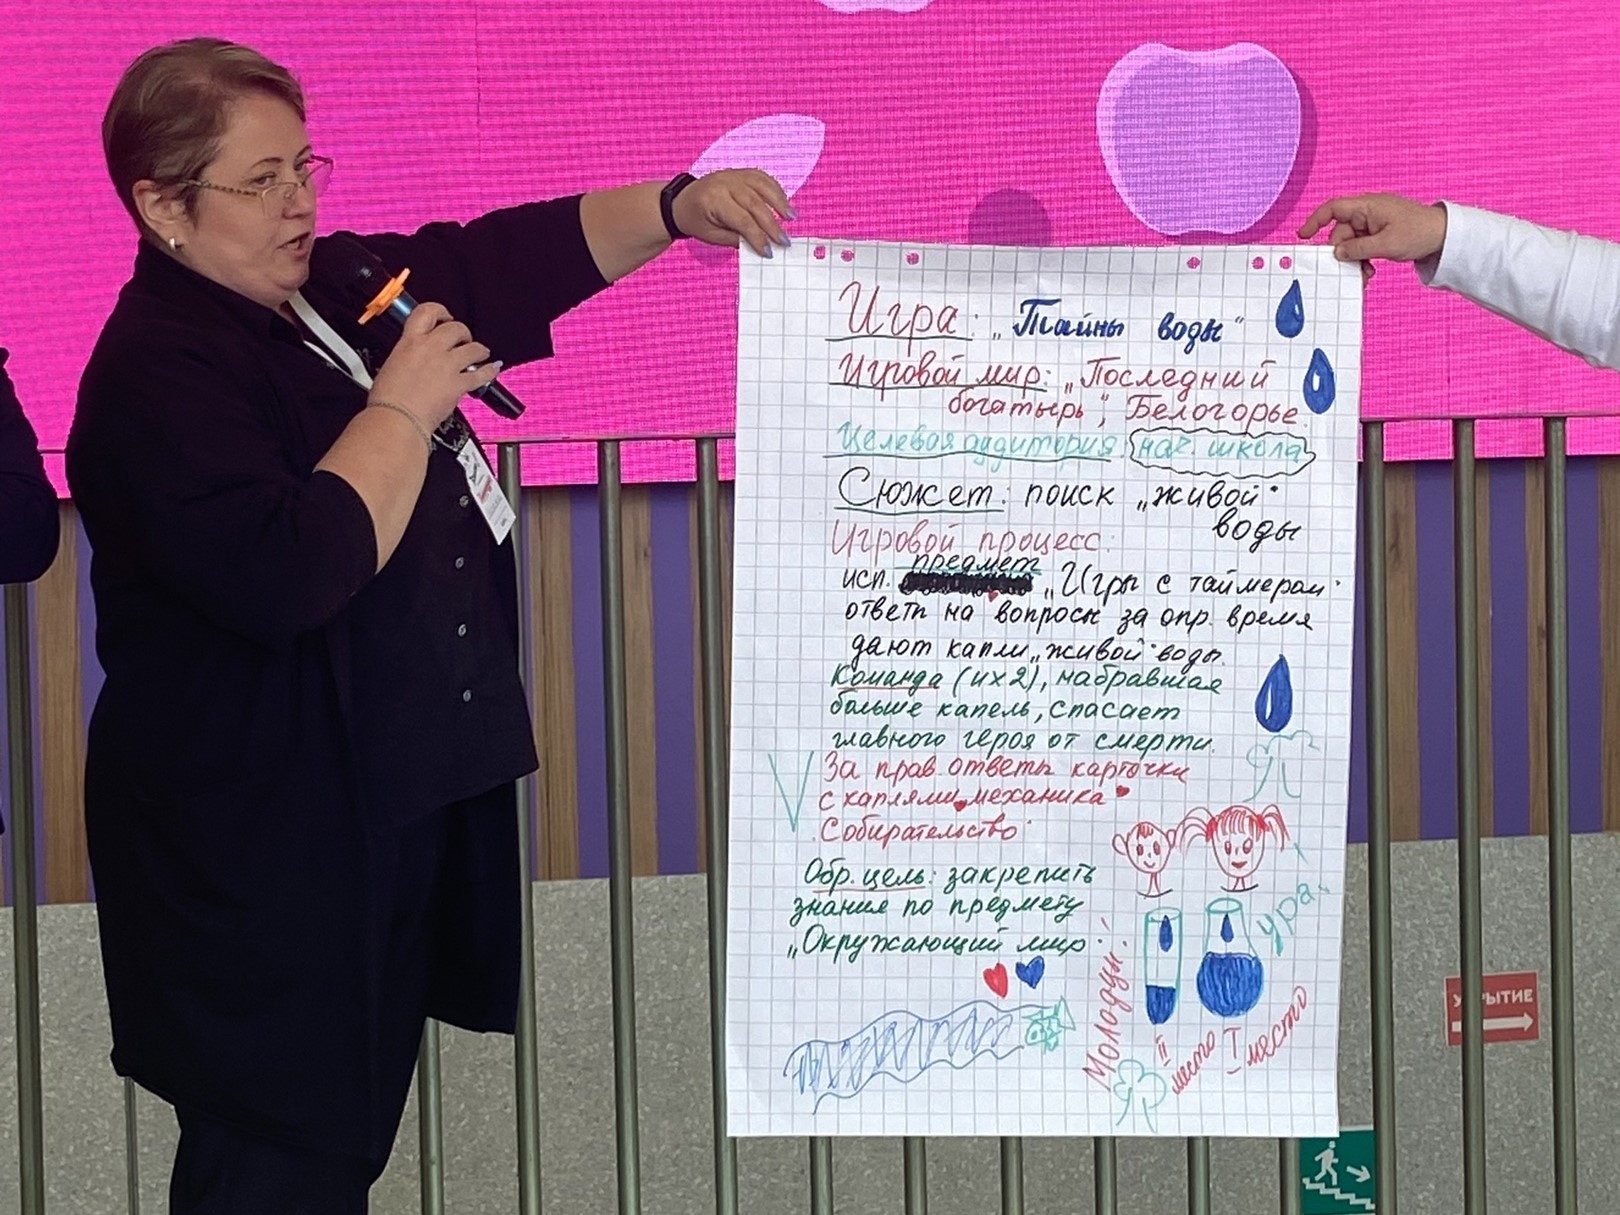 Игра: „Тайны воды"
Игровой мир: „Последний
богатырь", Белогорье.
Целевая аудитория: нач. школа
Сюжет: поиск „живой"
воды
Игровой процесс:
предмет
исп. „Игры с таймером"
ответы на вопросы за опр. время
дают капли „живой" воды.
Команда (их 2), набравшая
больше капель, спасает
главного героя от смерти.
За прав. ответы карточки
с каплями „механика"
Собирательство
Обр. цель: закрепить
знания по предмету
„Окружающий мир".
Ура
Молодцы!
II место
I место
УКРЫТИЕ